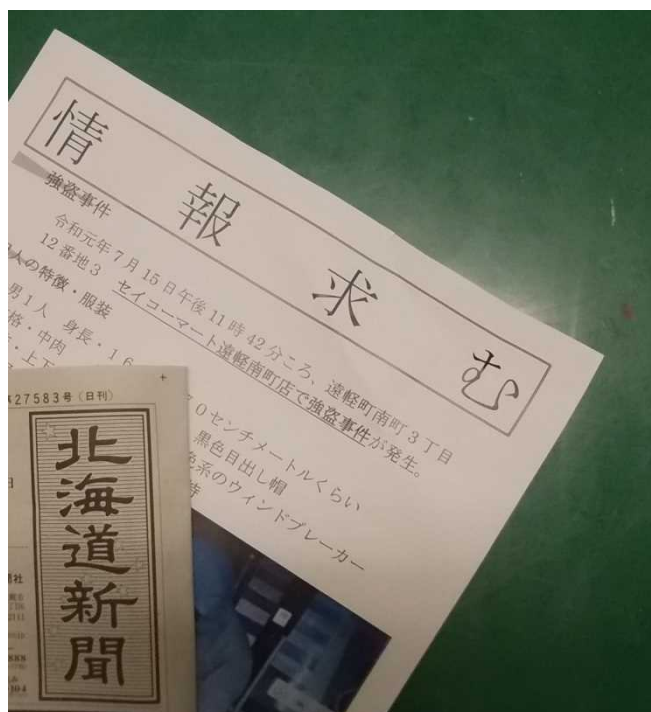 情報求む
強盗事件
令和元年7月15日午後11時42分ころ、遠軽町南町3丁目
12番地3 セイコーマート遠軽南町店で強盗事件が発生。
人の特徴・服装
男1人 身長・16
0センチメートルくらい
格・中肉
黒色目出し帽
・上下
色系のウィンドブレーカー
27583号(日刊)
北海道新聞